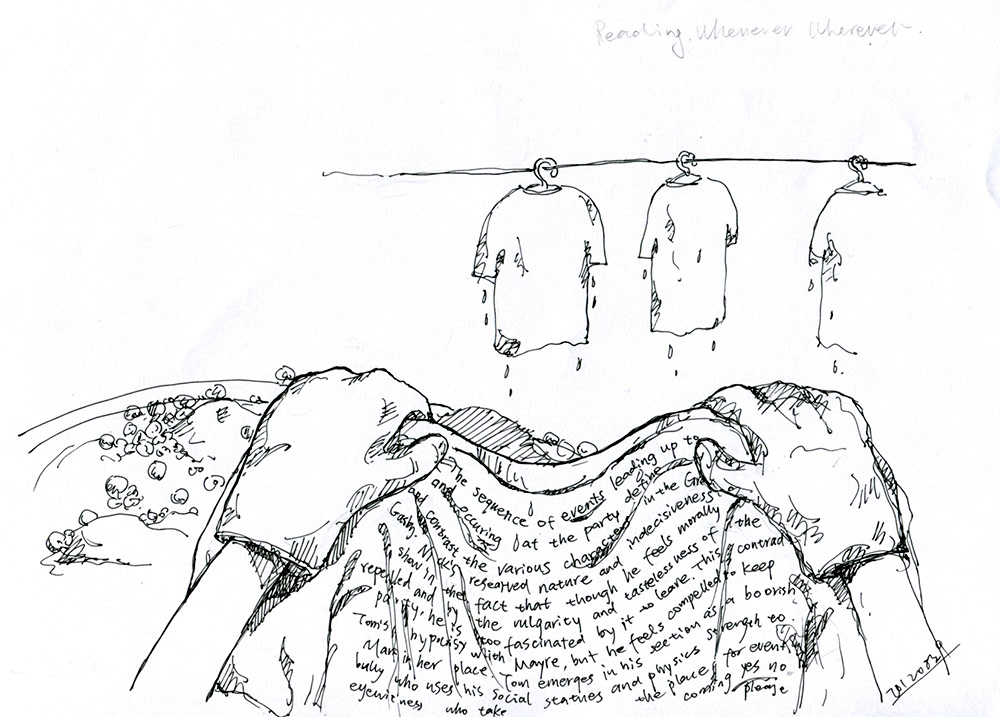 Reading. Whenever Wherever.
The sequence of events leading up to
and occuring at the party define
and contrast the various characters in the Gre
Gasby. Nick's researved nature and indecisiveness
show in the fact that though he feels morally
repelled and by the vulgarity and tastelessness of the
party, he is too fascinated by it to leave. This contrad
Tom's hypoisy with Mayre, but he feels compelled to keep
Mar in her place. Tom emerges in his section as a boorish
bully who uses his social statues and physics strength to
eyewisness who take the places for event
coming yes no
please
20120829